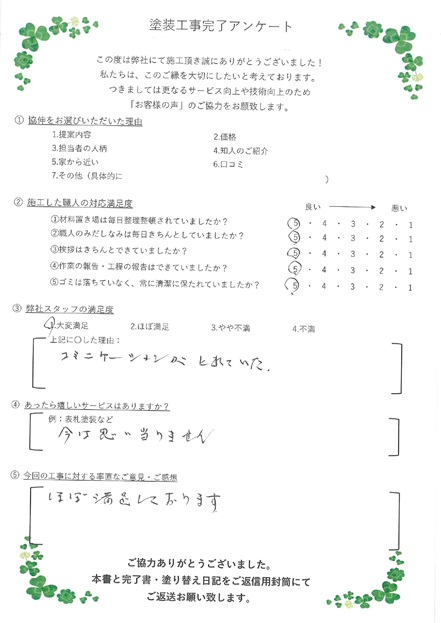 塗装工事完了アンケート
この度は弊社にて施工頂き誠にありがとうございました!
私たちは、このご縁を大切にしたいと考えております。
つきましては更なるサービス向上や技術向上のため
「お客様の声」のご協力をお願い致します。
① 協伸をお選びいただいた理由
1.提案内容 2.価格
3.担当者の人柄 4.知人のご紹介
5.家から近い 6.口コミ
7.その他(具体的に )
② 施工した職人の対応満足度 良い 悪い
①材料置き場は毎日整理整頓されていましたか? 5 ・ 4 ・ 3 ・ 2 ・ 1
②職人のみだしなみは毎日きちんとしていましたか? 5 ・ 4 ・ 3 ・ 2 ・ 1
③挨拶はきちんとできていましたか? 5 ・ 4 ・ 3 ・ 2 ・ 1
④作業の報告・工程の報告はできていましたか? 5 ・ 4 ・ 3 ・ 2 ・ 1
⑤ゴミは落ちていなく、常に清潔に保たれていましたか? 5 ・ 4 ・ 3 ・ 2 ・ 1
③ 弊社スタッフの満足度
1.大変満足 2.ほぼ満足 3.やや不満 4.不満
上記に〇した理由:
コミニケーションがとれていた.
④ あったら嬉しいサービスはありますか?
例:表札塗装など
今は思い当りません
⑤ 今回の工事に対する率直なご意見・ご感想
ほぼ満足しております
ご協力ありがとうございました。
本書と完了書・塗り替え日記をご返信用封筒にて
ご返送お願い致します。